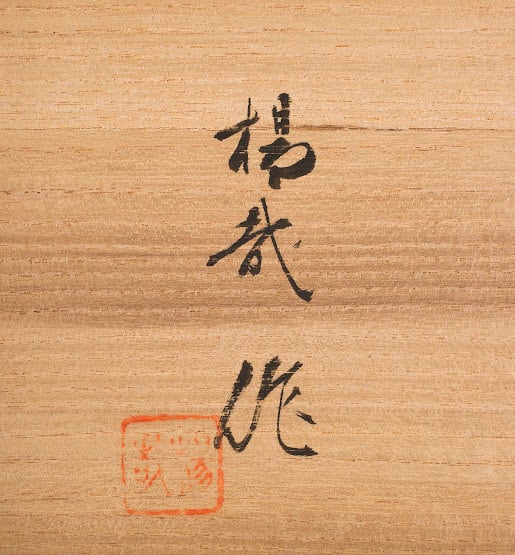 楊哉作